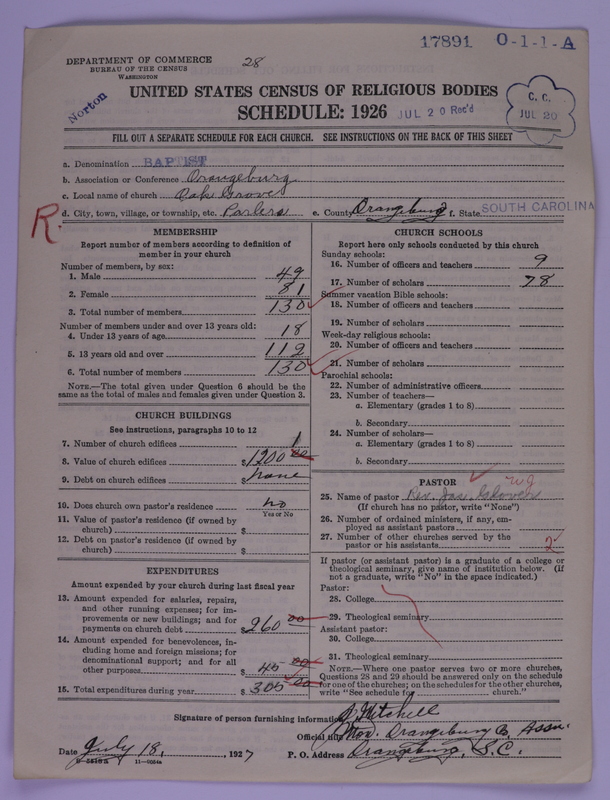 17891 O-1-1-A
DEPARTMENT OF COMMERCE
BUREAU OF THE CENSUS
WASHINGTON
28
Norton
UNITED STATES CENSUS OF RELIGIOUS BODIES
SCHEDULE: 1926
JUL 20 Rec'd
C. C.
JUL 20
FILL OUT A SEPARATE SCHEDULE FOR EACH CHURCH. SEE INSTRUCTIONS ON THE BACK OF THIS SHEET
a. Denomination BAPTIST
b. Association or Conference Orangeburg
c. Local name of church Oak Grove
d. City, town, village, or township, etc. Parlers e. County Orangeburg f. State SOUTH CAROLINA
R.
MEMBERSHIP
Report number of members according to definition of
member in your church
Number of members, by sex:
1. Male 49
2. Female 81
3. Total number of members 130
Number of members under and over 13 years old:
4. Under 13 years of age 18
5. 13 years old and over 112
6. Total number of members 130
NOTE.—The total given under Question 6 should be the
same as the total of males and females given under Question 3.
CHURCH BUILDINGS
See instructions, paragraphs 10 to 12
7. Number of church edifices 1
8. Value of church edifices $1200 00
9. Debt on church edifices $ none
10. Does church own pastor's residence no
Yes or No
11. Value of pastor's residence (if owned by
church) $
12. Debt on pastor's residence (if owned by
church) $
EXPENDITURES
Amount expended by your church during last fiscal year
13. Amount expended for salaries, repairs,
and other running expenses; for im-
provements or new buildings; and for
payments on church debt $260 00
14. Amount expended for benevolences, in-
cluding home and foreign missions; for
denominational support; and for all
other purposes $ 00
15. Total expenditures during year $ 00
CHURCH SCHOOLS
Report here only schools conducted by this church
Sunday schools:
16. Number of officers and teachers 9
17. Number of scholars 78
Summer vacation Bible schools:
18. Number of officers and teachers
19. Number of scholars
Week-day religious schools:
20. Number of officers and teachers
21. Number of scholars
Parochial schools:
22. Number of administrative officers
23. Number of teachers—
a. Elementary (grades 1 to 8)
b. Secondary
24. Number of scholars—
a. Elementary (grades 1 to 8)
b. Secondary
PASTOR
25. Name of pastor Rev. Jas. Glover
(If church has no pastor, write "None")
26. Number of ordained ministers, if any, em-
ployed as assistant pastors
27. Number of other churches served by the
pastor or his assistants 2
If pastor (or assistant pastor) is a graduate of a college or
theological seminary, give name of institution below. (If
not a graduate, write "No" in the space indicated.)
Pastor:
28. College
29. Theological seminary
Assistant pastor:
30. College
31. Theological seminary
NOTE.—Where one pastor serves two or more churches,
Questions 28 and 29 should be answered only on the schedule
for one of the churches; on the schedules for the other churches,
write "See schedule for church."
Signature of person furnishing information Mitchell
Official title Mod. Orangeburg Co. Assn.
Date July 18, 1927 P. O. Address Orangeburg, S.C.